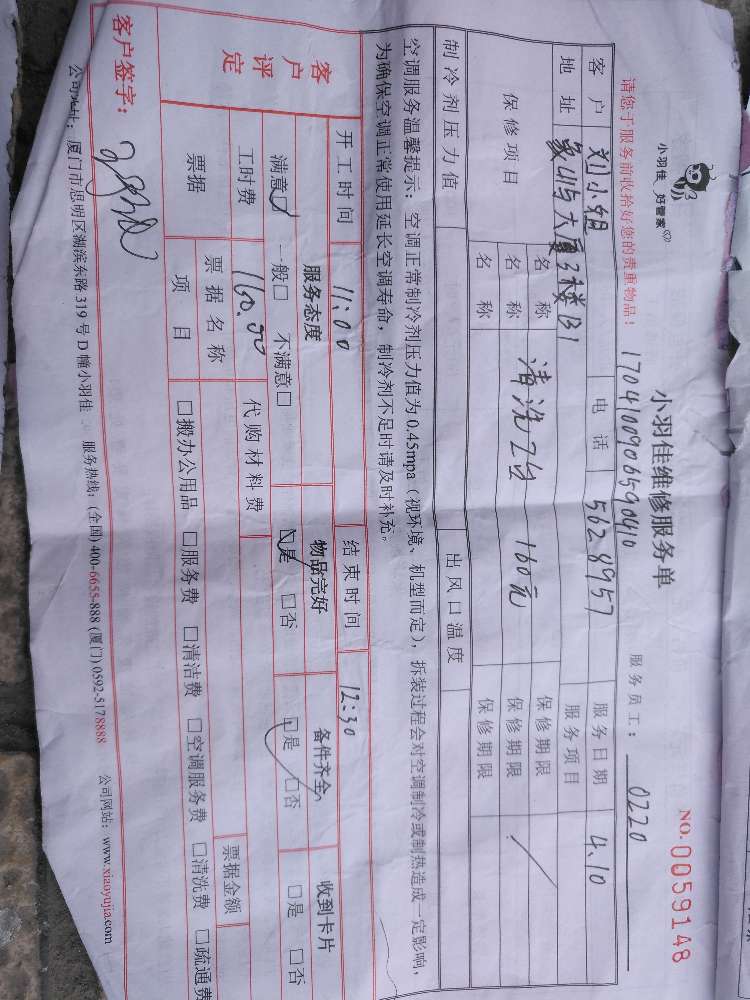 小羽佳 好管家
小羽佳维修服务单
NO.0059148
请您于服务前收拾好您的贵重物品！
1704100906590410
服务员工： 0220
客户 刘小姐 电话 5628957 服务日期 4.10
地址 象屿大厦3楼B1 服务项目
保修项目 名称 清洗2台 160元 保修期限
名称 保修期限
名称 保修期限
制冷剂压力值 出风口温度
空调服务温馨提示：空调正常制冷剂压力值为0.45mpa（视环境、机型而定），拆装过程会对空调制冷或制热造成一定影响，
为确保空调正常使用延长空调寿命，制冷剂不足时请及时补充。
开工时间 11:00 结束时间 12:30
客户评定 服务态度 物品完好 备件齐全 收到卡片
满意☑ 一般□ 不满意□ ☑是 □否 □是 □否 □是 □否
工时费 160.00 代购材料费
票据 票据名称 票据金额
项目 □搬办公用品 □服务费 □清洁费 □空调服务费 □清洗费 □疏通费
客户签字：
公司地址：厦门市思明区湖滨东路319号D幢小羽佳 服务热线：(全国)400-6655-888 (厦门)0592-5178888 公司网站：www.xiaoyujia.com